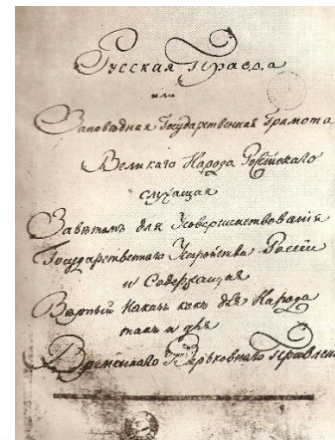 Русская Правда
или
Заповѣдная Государственная Грамота
Великаго Народа Россійскаго
служащая
Завѣтомъ для Усовершенствованія
Государственнаго Устройства Россіи
и Содержащая
Вѣрный Наказъ какъ для Народа
такъ и для
Временнаго Верьховнаго Правленія